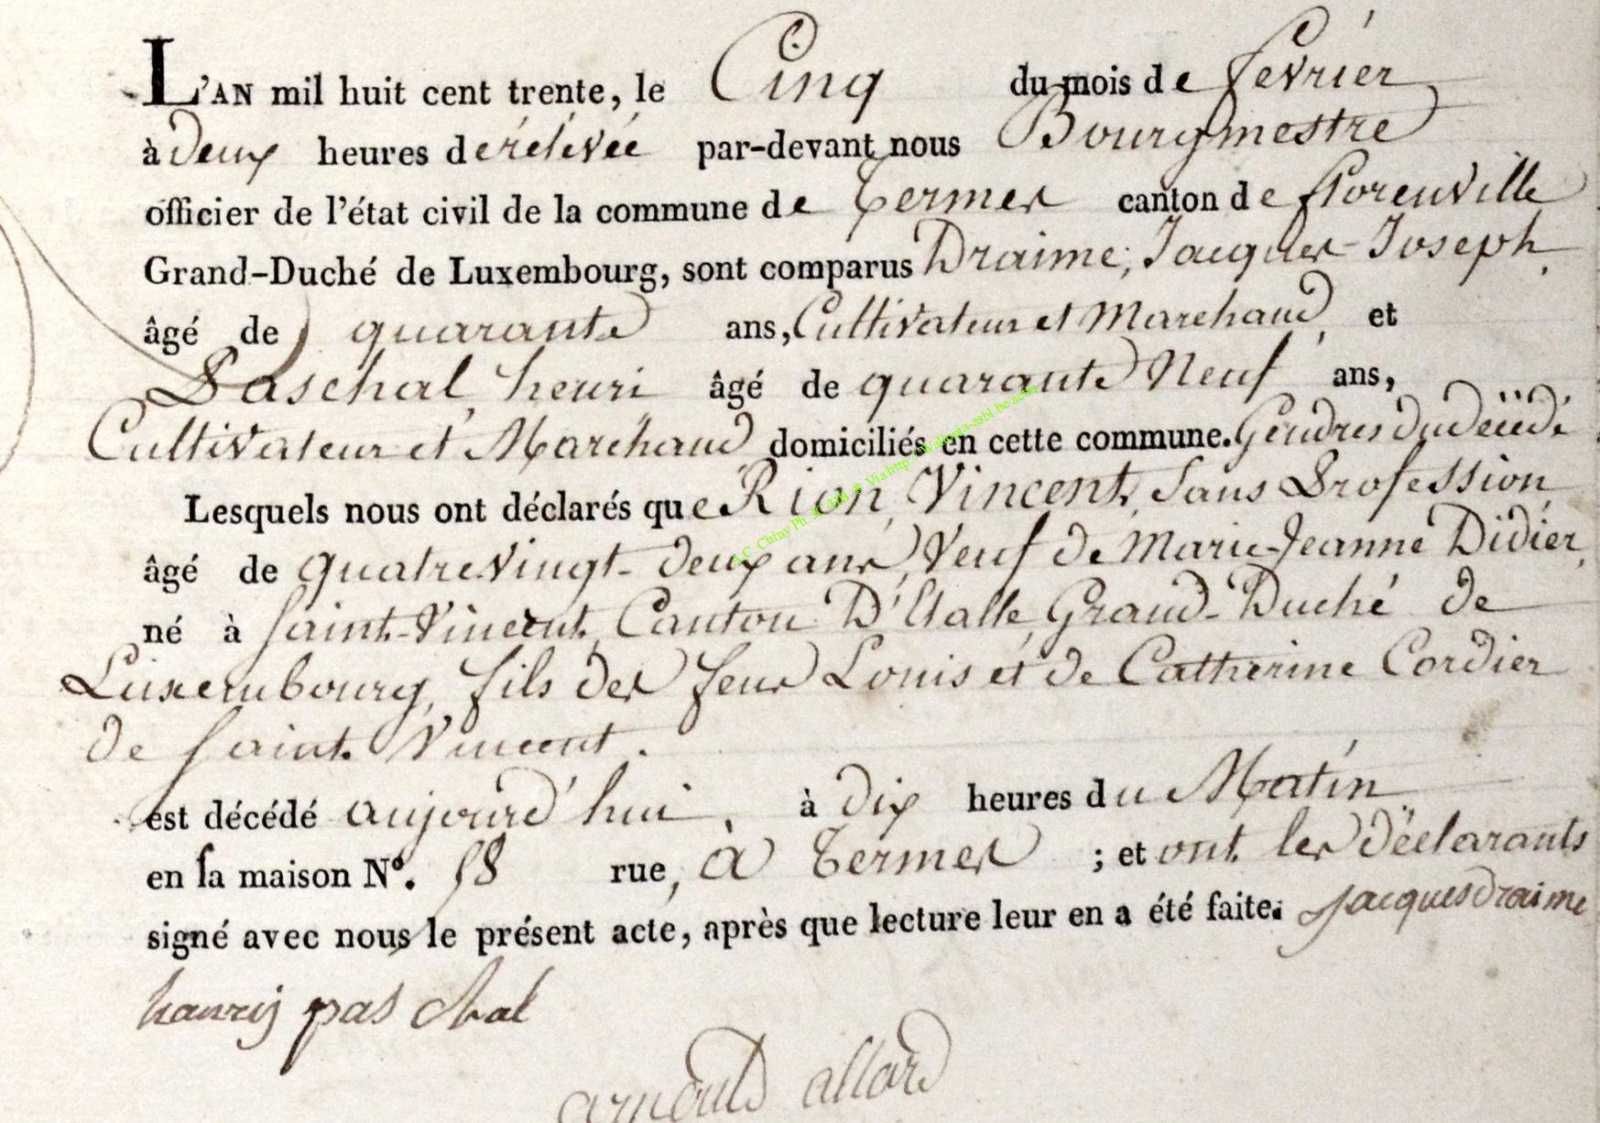 L'AN mil huit cent trente, le Cinq du mois de février
à deux heures de rélévée par-devant nous Bourgmestre
officier de l'état civil de la commune de Termes canton de florenville
Grand-Duché de Luxembourg, sont comparus Draime, Jacques-Joseph,
âgé de quarante ans, Cultivateur et Marchand, et
Paschal, henri âgé de quarante Neuf ans,
Cultivateur et Marchand domiciliés en cette commune. Gendres du décédé
Lesquels nous ont déclarés que Rion, Vincent, Sans Profession
âgé de quatre Vingt-deux ans, Veuf de Marie-Jeanne Didier,
né à Saint-Vincent, Canton D'Etalle, Grand-Duché de
Luxembourg, fils des feus Louis et de Catherine Cordier
de Saint-Vincent.
est décédé aujourd'hui, à dix heures du Matin
en sa maison N°. 58 rue, à Termes ; et ont les déclarants
signé avec nous le présent acte, après que lecture leur en a été faite. Jacques draime
hanrij paschal
arnould allard